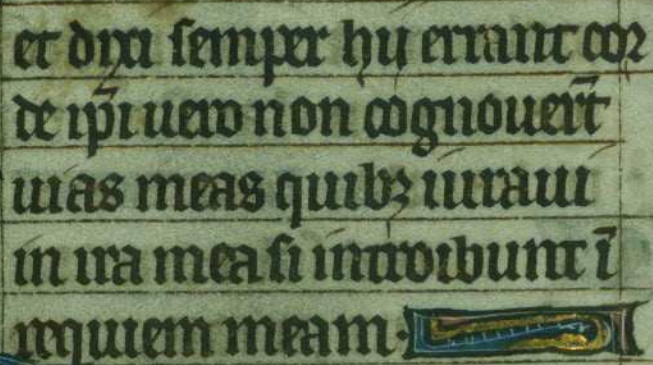 et dixi semper hij errant cor
de ip̄i uero non cognouer̄t
uias meas quibꝫ iuraui
in ira mea si introibunt ī
requiem meam.